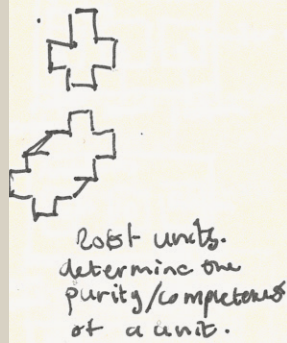 units.
determine the
purity/completeness
of a unit.